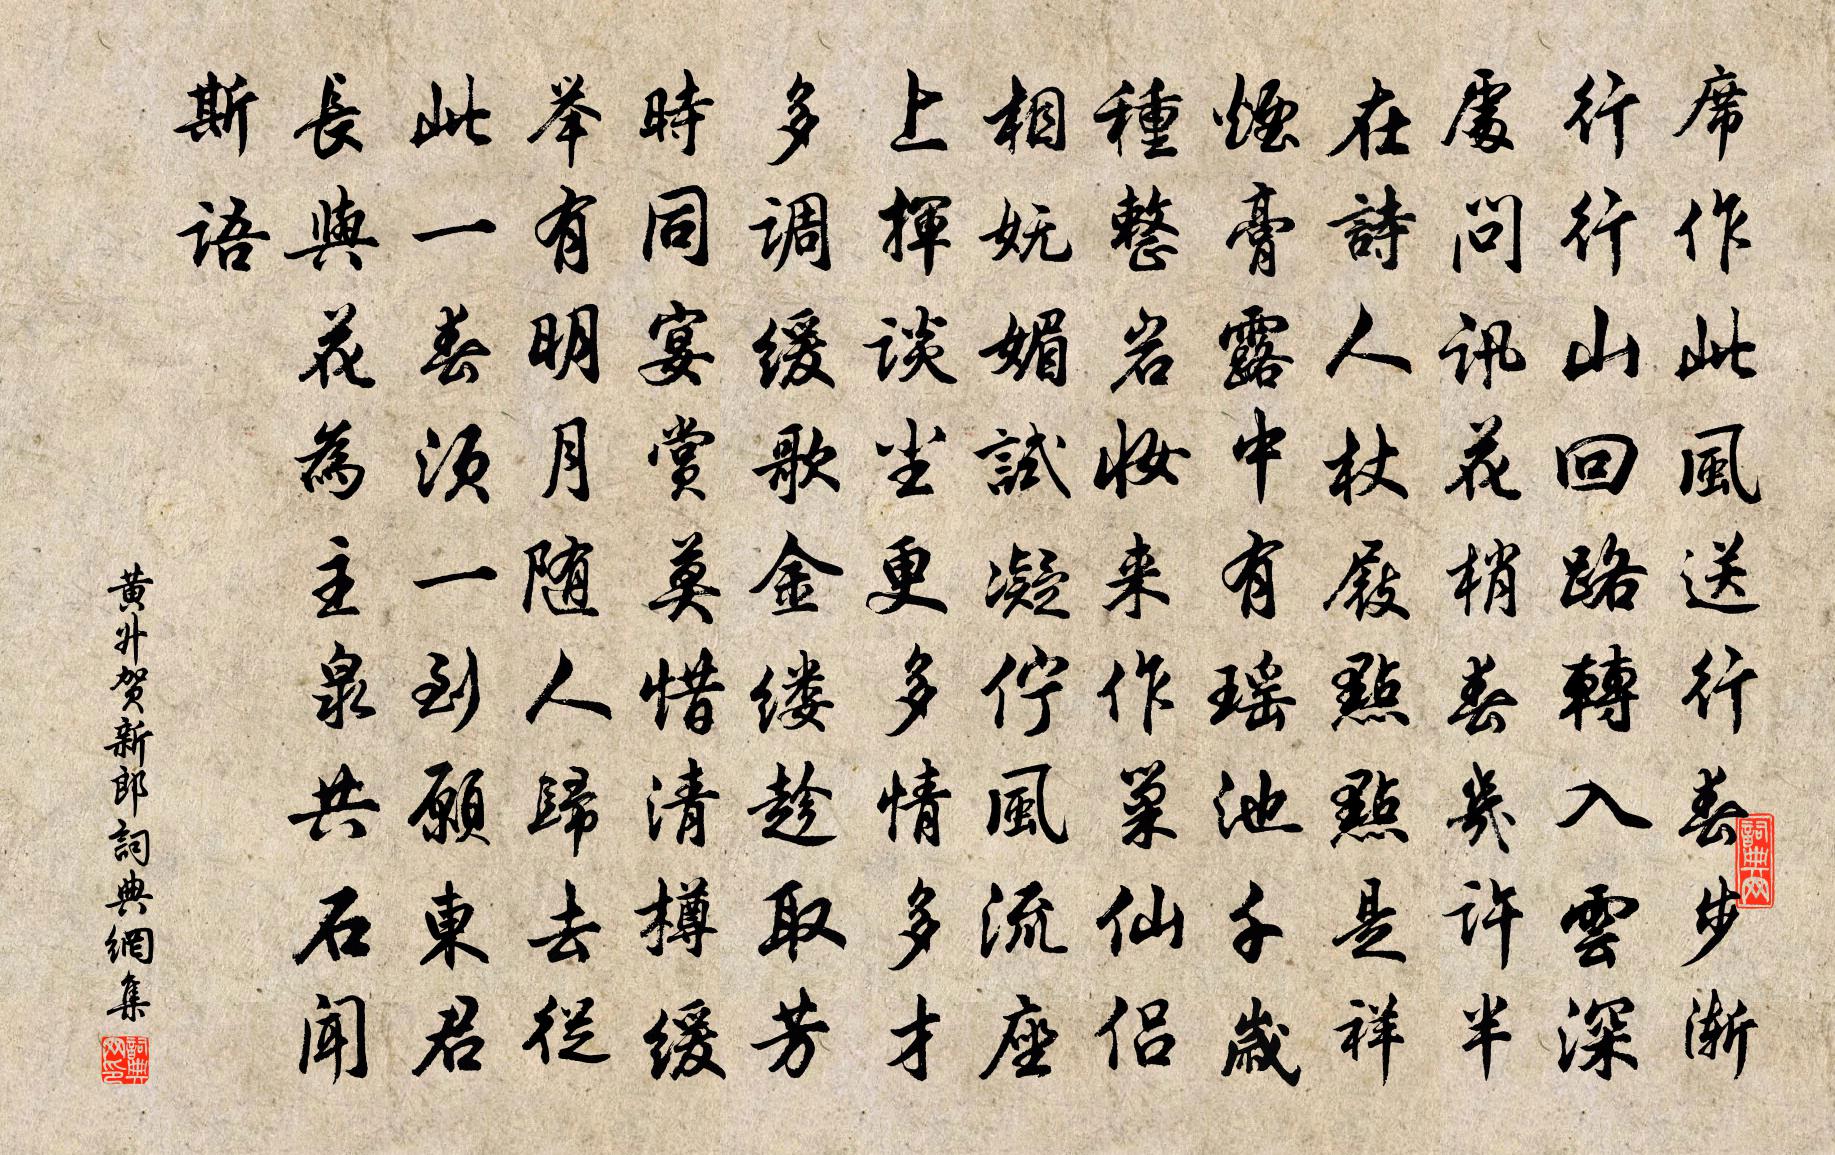 席作此風送行春步漸
行行山回路轉入雲深
處問訊花梢春幾許半
在詩人杖屐點點是祥
煙膏露中有瑶池千歲
種整岩妝来作巢仙侣
相妩媚試凝佇風流座
上揮谈尘更多情多才
多调缓歌金缕趁取芳
時同宴賞莫惜清樽缓
举有明月随人歸去從
此一春須一到願東君
長與花為主泉共石闻
斯语
黄升贺新郎詞典網集
詞典网
詞典网印